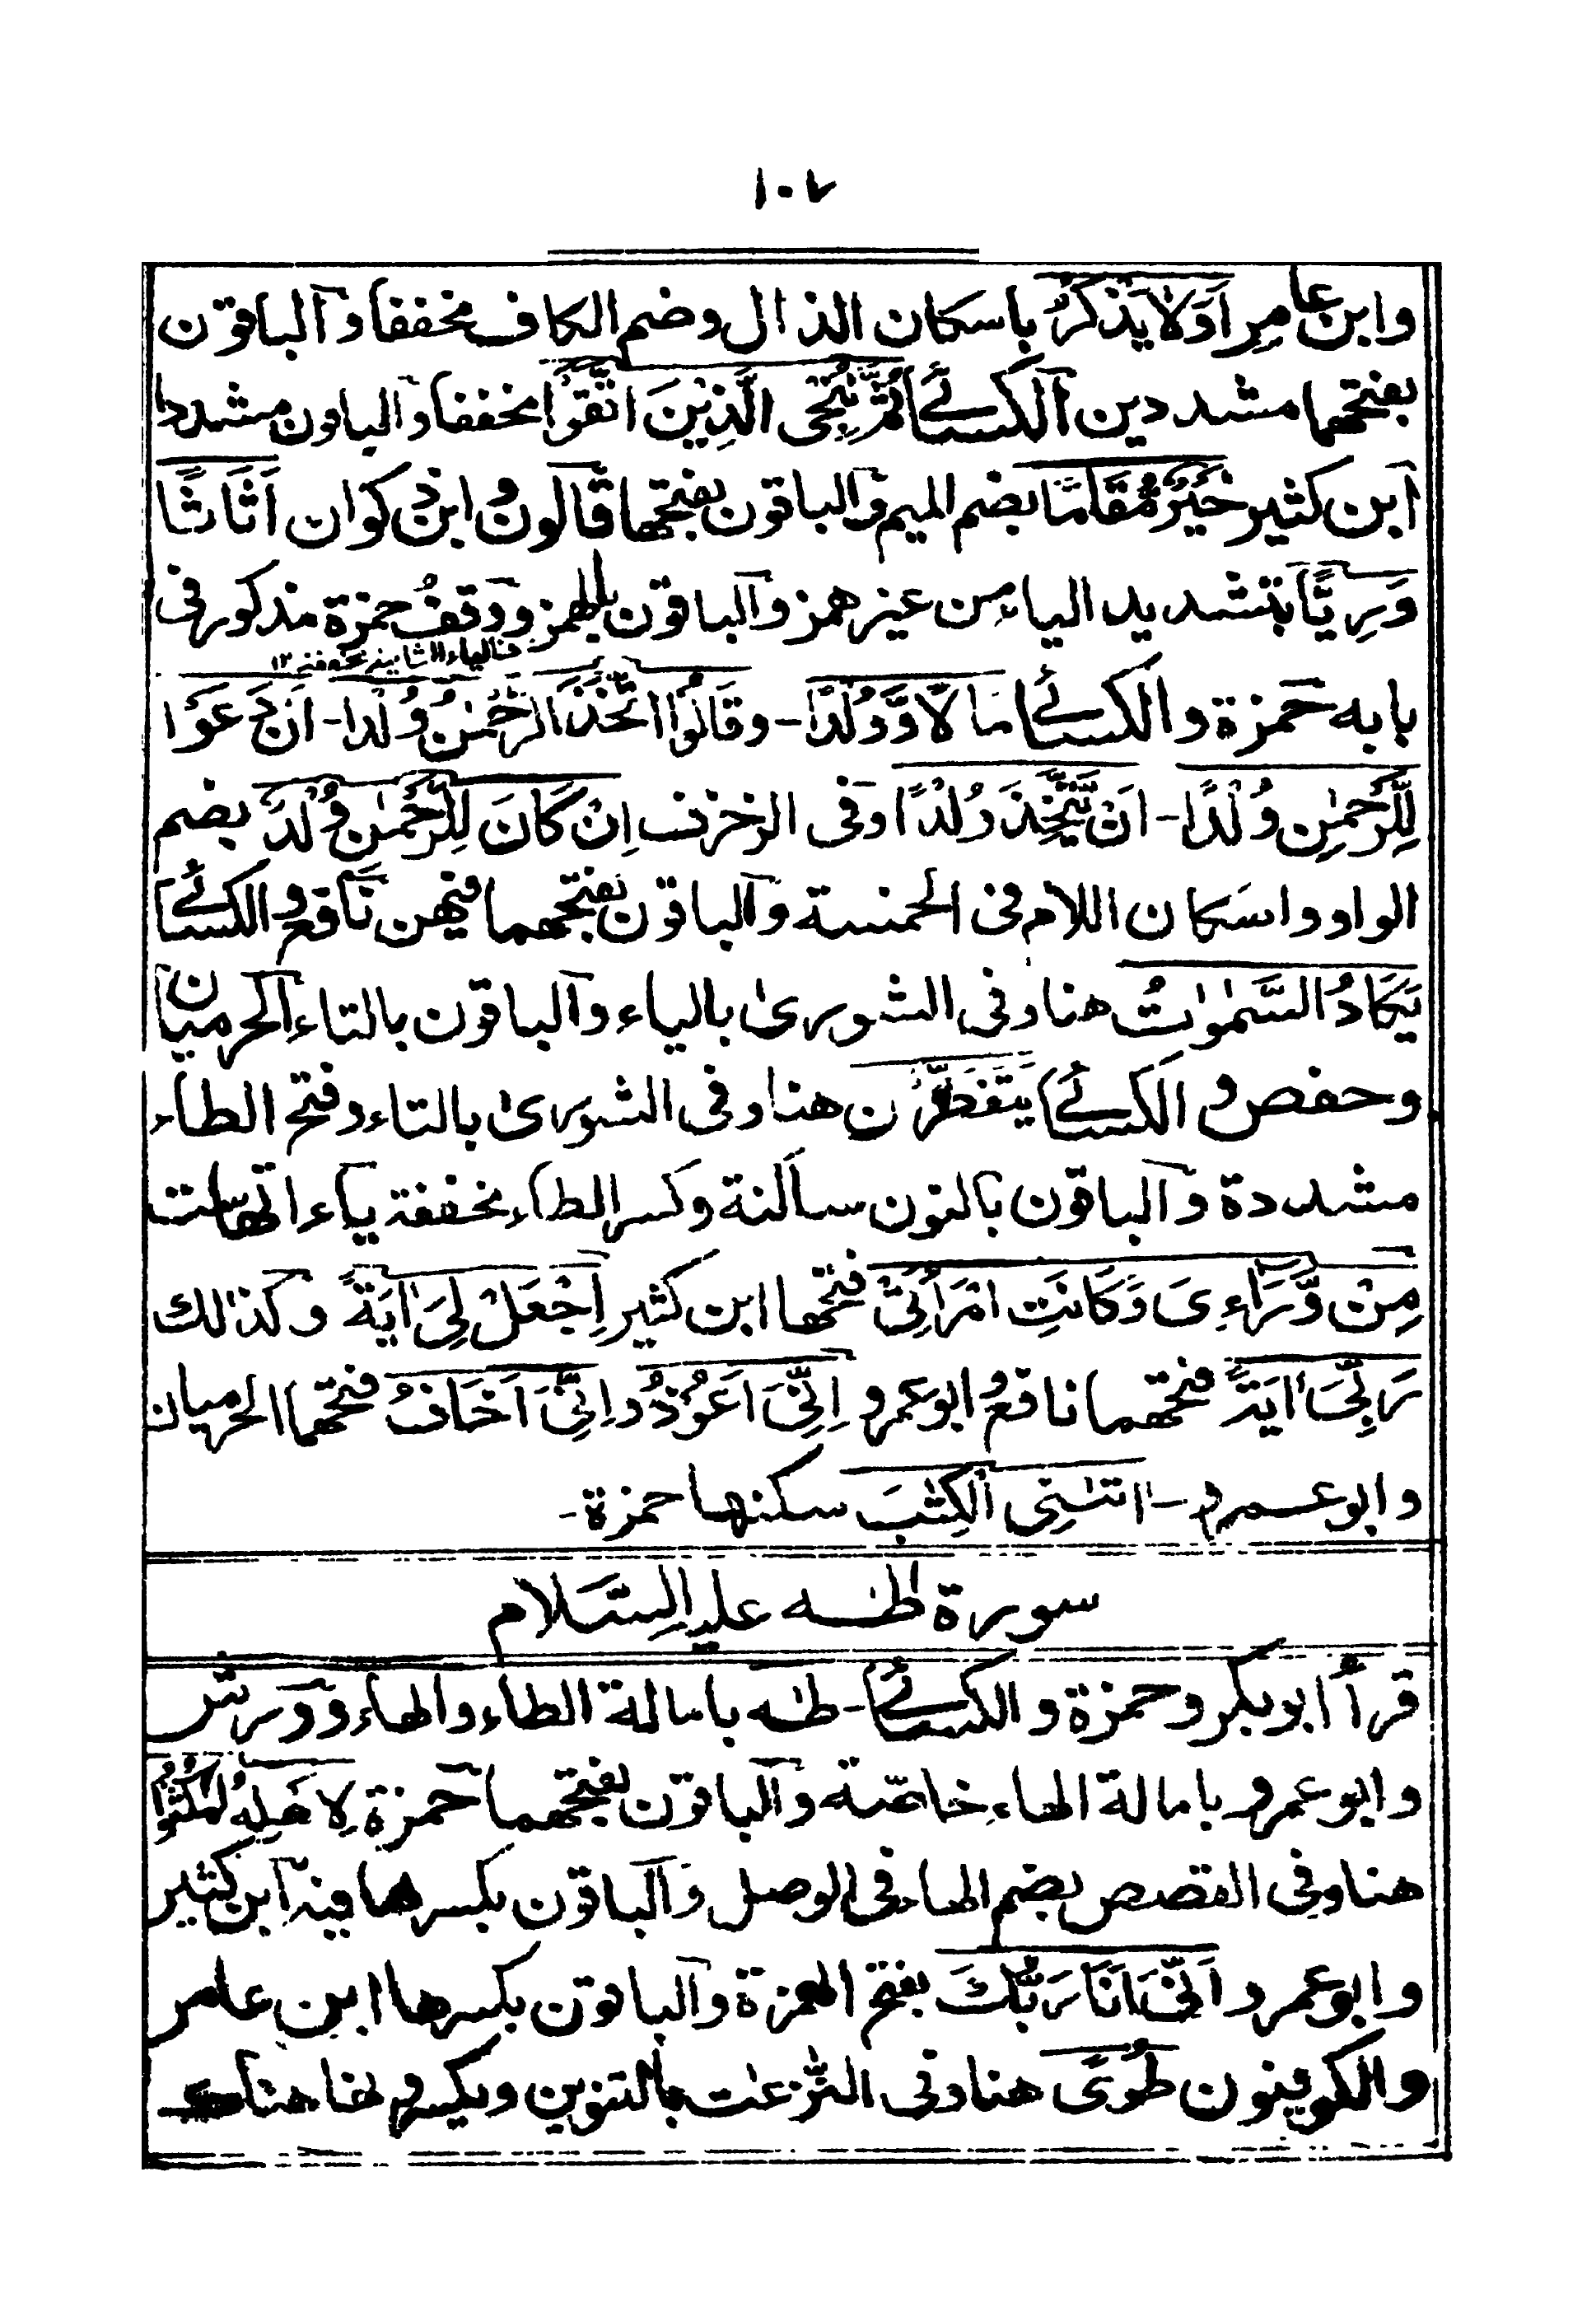 ١٠٧
وابن عامر اَوَلَا يَذْكُرُ باسكان الذال وضم الكاف مخففا والباقون
بفتحهما مشددين الكسائے ثُمَّ نُنْجِى الَّذِيْنَ اتَّقَوْا مخففا والباقون مشددا
ابن كثير خَيْرٌ مُّقَامًا بضم الميم والباقون بفتحها قالون وابن ذكوان اَثَاثًا
وَرِيًّا بتشديد الياء من غير همز والباقون بالهمز ووقف حمزة مذكور فى
بابه حمزة والكسائے مَالًا وَّوُلْدًا - وَقَالُوا اتَّخَذَ الرَّحْمٰنُ وُلْدًا - اَنْ دَعَوْا
لِلرَّحْمٰنِ وُلْدًا - اَنْ يَّتَّخِذَ وُلْدًا وفى الزخرف اِنْ كَانَ لِلرَّحْمٰنِ وُلْدٌ بضم
الواو واسكان اللام فى الخمسة والباقون بفتحهما فيهن نافع والكسائے
يَكَادُ السَّمٰوٰتُ هنا وفى الشورىٰ بالياء والباقون بالتاء الحرميان
وحفص والكسائے يَتَفَطَّرْنَ هنا وفى الشورىٰ بالتاء وفتح الطاء
مشددة والباقون بالنون ساكنة وكسر الطاء مخففة ياءاتها ست
مِنْ وَّرَاءِىَ وَكَانَتِ امْرَأَتِىْ فتحها ابن كثير اِجْعَلْ لِىَ اٰيَةً وكذالك
رَبِّىَ اٰيَةً فتحهما نافع وابو عمرو اِنِّىَ اَعُوْذُ واِنِّىَ اَخَافُ فتحهما الحرميان
وابو عمرو - اٰتٰىنِى الْكِتٰبَ سكنها حمزة -
سورة طٰه عليه السَّلام
قرأ ابوبكر وحمزة والكسائے - طٰه بامالة الطاء والهاء وورش
وابو عمرو بامالة الهاء خاصّة والباقون بفتحهما حمزة لِاَهْلِهُ امْكُثُوْا
هنا وفى القصص بضم الهاء فى الوصل والباقون بكسرها فيه ابن كثير
وابو عمرو اَنِّىَ اَنَا رَبُّكَ بفتح الهمزة والباقون بكسرها ابن عامر
والكوفيون طُوًى هنا وفى النّٰزعٰت بالتنوين ويكسرونها هنا